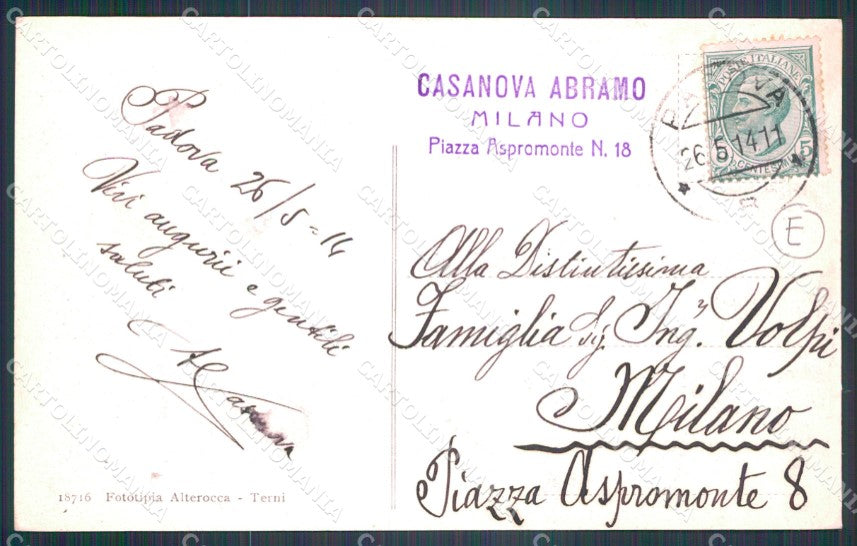 Padova 26/5-14
Vivi augurii e gentili
saluti
ACasanova
18716 Fototipia Alterocca - Terni
CASANOVA ABRAMO
MILANO
Piazza Aspromonte N. 18
POSTE ITALIANE
CENTESIMI 5
PADOVA
26.5.14.11
E
Alla Distintissima
Famiglia Sig. Ing.r Volpi
Milano
Piazza Aspromonte 8
CARTOLINOMANIA